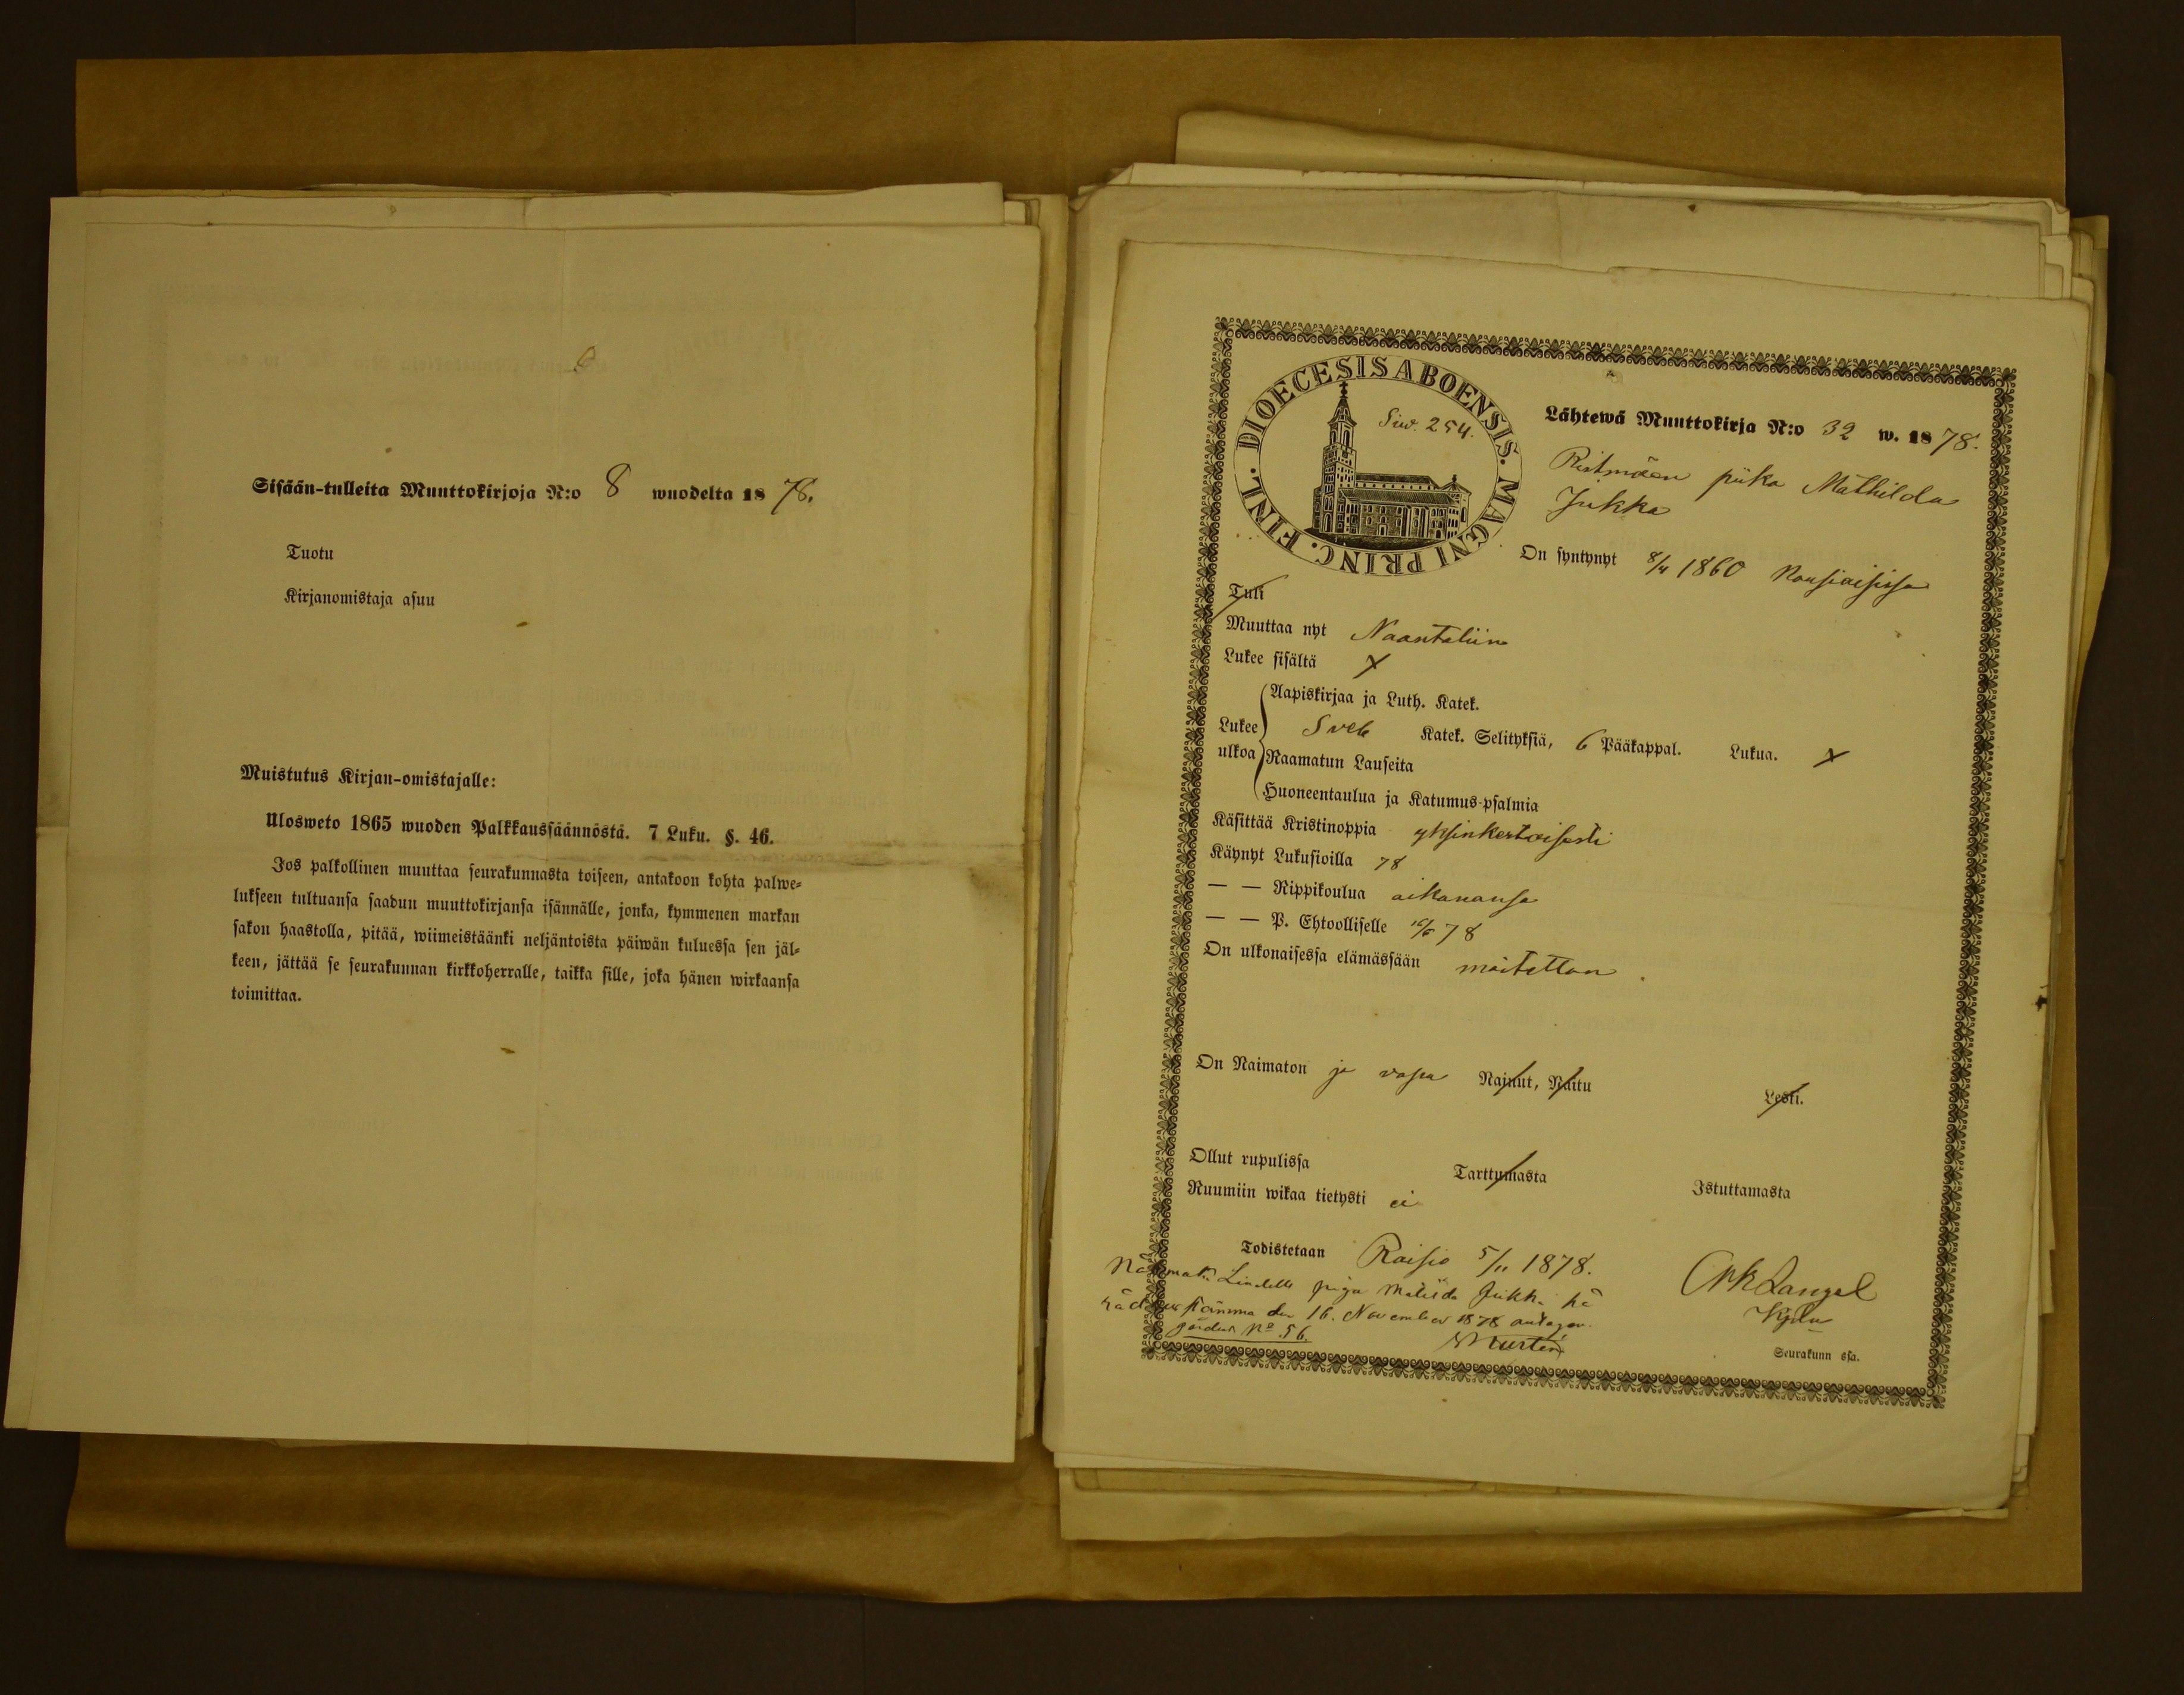 Sisään-tulleita Muuttokirjoja N:o 8 wuodelta 1878.
Tuotu
Kirjanomistaja asuu
Muistutus Kirjan-omistajalle:
Ulosweto 1865 wuoden Palkkaussäännöstä. 7 Luku. §. 46.
Jos palkollinen muuttaa seurakunnasta toiseen, antakoon kohta palwe-
lukseen tultuansa saadun muuttokirjansa isännälle, jonka, kymmenen markan
sakon haastolla, pitää, wiimeistäänki neljäntoista päiwän kuluessa sen jäl-
keen, jättää se seurakunnan kirkkoherralle, taikka sille, joka hänen wirkaansa
toimittaa.
DIOECESIS ABOENSIS. MAGNI PRINC. FINL.
Siv. 254.
Lähtewä Muuttokirja N:o 32 w. 1878.
piika Mathilda
Jukka
On syntynyt 8/4 1860 Nousiaisissa
Tuli
Muuttaa nyt Naantaliin
Lukee sisältä x
Aapiskirjaa ja Luth. Katek.
Lukee ulkoa Sveb Katek. Selityksiä, 6 Pääkappal. Lukua. x
Raamatun Lauseita
Huoneentaulua ja Katumus-psalmia
Käsittää Kristinoppia yksinkertaisesti
Käynyt Lukusioilla 78
— — Rippikoulua aikanansa
— — P. Ehtoolliselle 78
On ulkonaisessa elämässään moitetton
On Naimaton ja vapa Nainut, Naitu Leski.
Ollut rupulissa Tarttumasta Istuttamasta
Ruumiin wikaa tietysti ei
Todistetaan Raisio 5/11 1878.
Lindells piga Matilda Jukka på
stämma den 16. November 1878 antagen.
gården No. 56.
Seurakunn ssa.